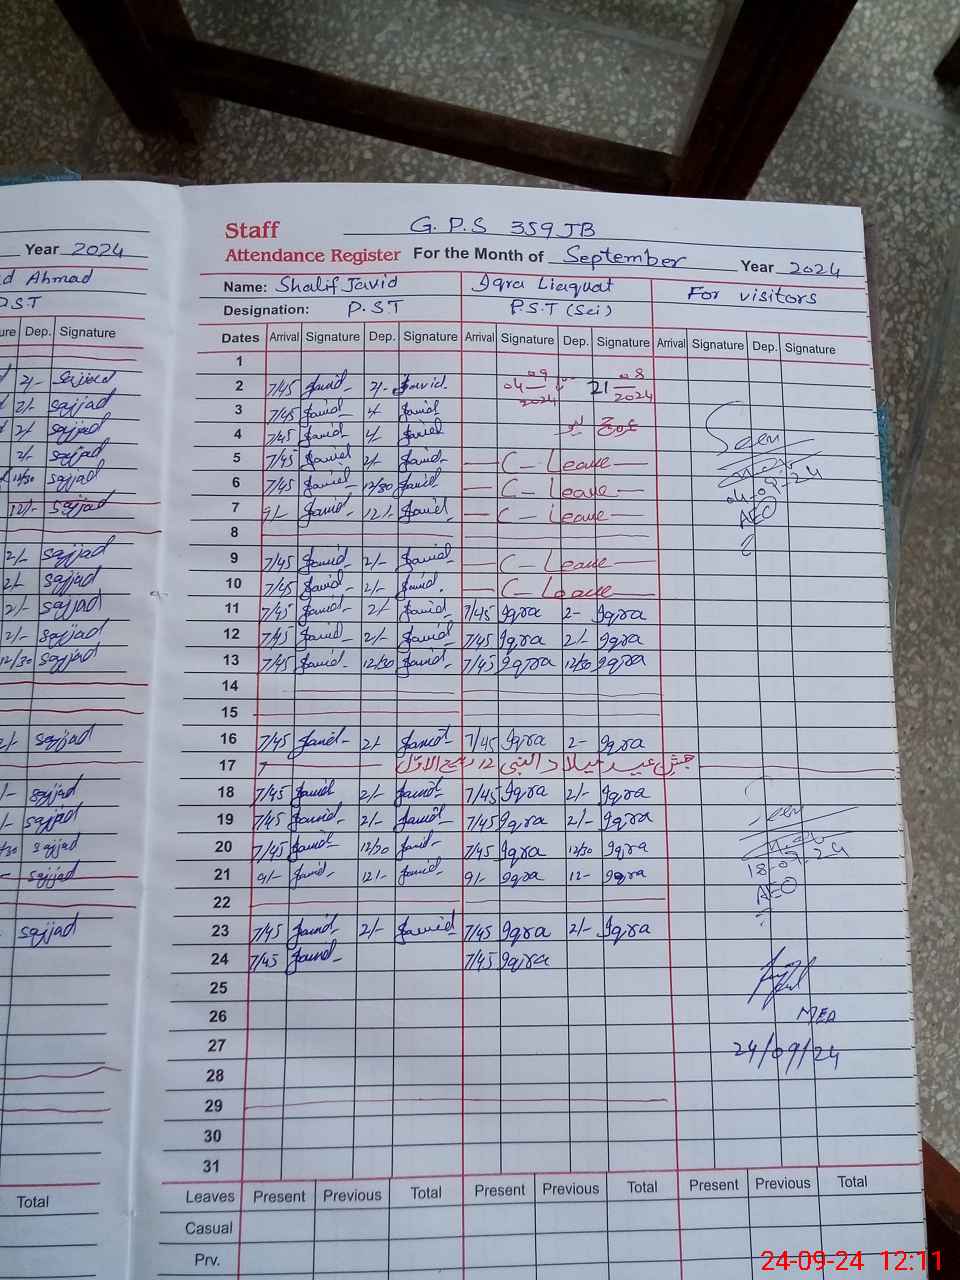 Year 2024
d Ahmad
ure Dep. Signature
2/- sajjad
2/- sajjad
2/- sajjad
2/- sajjad
12/30 sajjad
12/- sajjad
2/- sajjad
2/- sajjad
2/- sajjad
2/- sajjad
12/30 sajjad
2/- sajjad
/- sajjad
/- sajjad
/30 sajjad
sajjad
sajjad
Total
Staff G.P.S 359 JB
Attendance Register For the Month of September Year 2024
Name: Shalif Javid Iqra Liaquat For visitors
Designation: P.S.T P.S.T (Sci)
Dates Arrival Signature Dep. Signature Arrival Signature Dep. Signature Arrival Signature Dep. Signature
1
2 7/45 Javid 2/- Javid 04 09 2024 21 08 2024
3 7/45 Javid Javid
4 7/45 Javid Javid
5 7/45 Javid 2/- Javid C- Leave
6 7/45 Javid 12/30 Javid C- Leave
7 9/- Javid 12/- Javid C- Leave
8
9 7/45 Javid 2/- Javid C- Leave
10 7/45 Javid 2/- Javid C- Leave
11 7/45 Javid 2/ Javid 7/45 Iqra 2- Iqra
12 7/45 Javid 2/- Javid 7/45 Iqra 2/- Iqra
13 7/45 Javid 12/30 Javid 7/45 Iqra 12/30 Iqra
14
15
16 7/45 Javid 2/- Javid 7/45 Iqra 2- Iqra
17 جشن عید میلاد النبی 12 ربیع الاوّل
18 7/45 Javid 2/- Javid 7/45 Iqra 2/- Iqra
19 7/45 Javid 2/- Javid 7/45 Iqra 2/- Iqra
20 7/45 Javid 12/30 Javid 7/45 Iqra 12/30 Iqra
21 9/- Javid 12/- Javid 9/- Iqra 12- Iqra
22
23 7/45 Javid 2/- Javid 7/45 Iqra 2/- Iqra
24 7/45 Javid 7/45 Iqra
25
26
27
28
29
30
31
Seen
04-09-24
AEO
Seen
18-09-24
AEO
MEA
24/09/24
Leaves Present Previous Total Present Previous Total Present Previous Total
Casual
Prv.
24-09-24 12:11